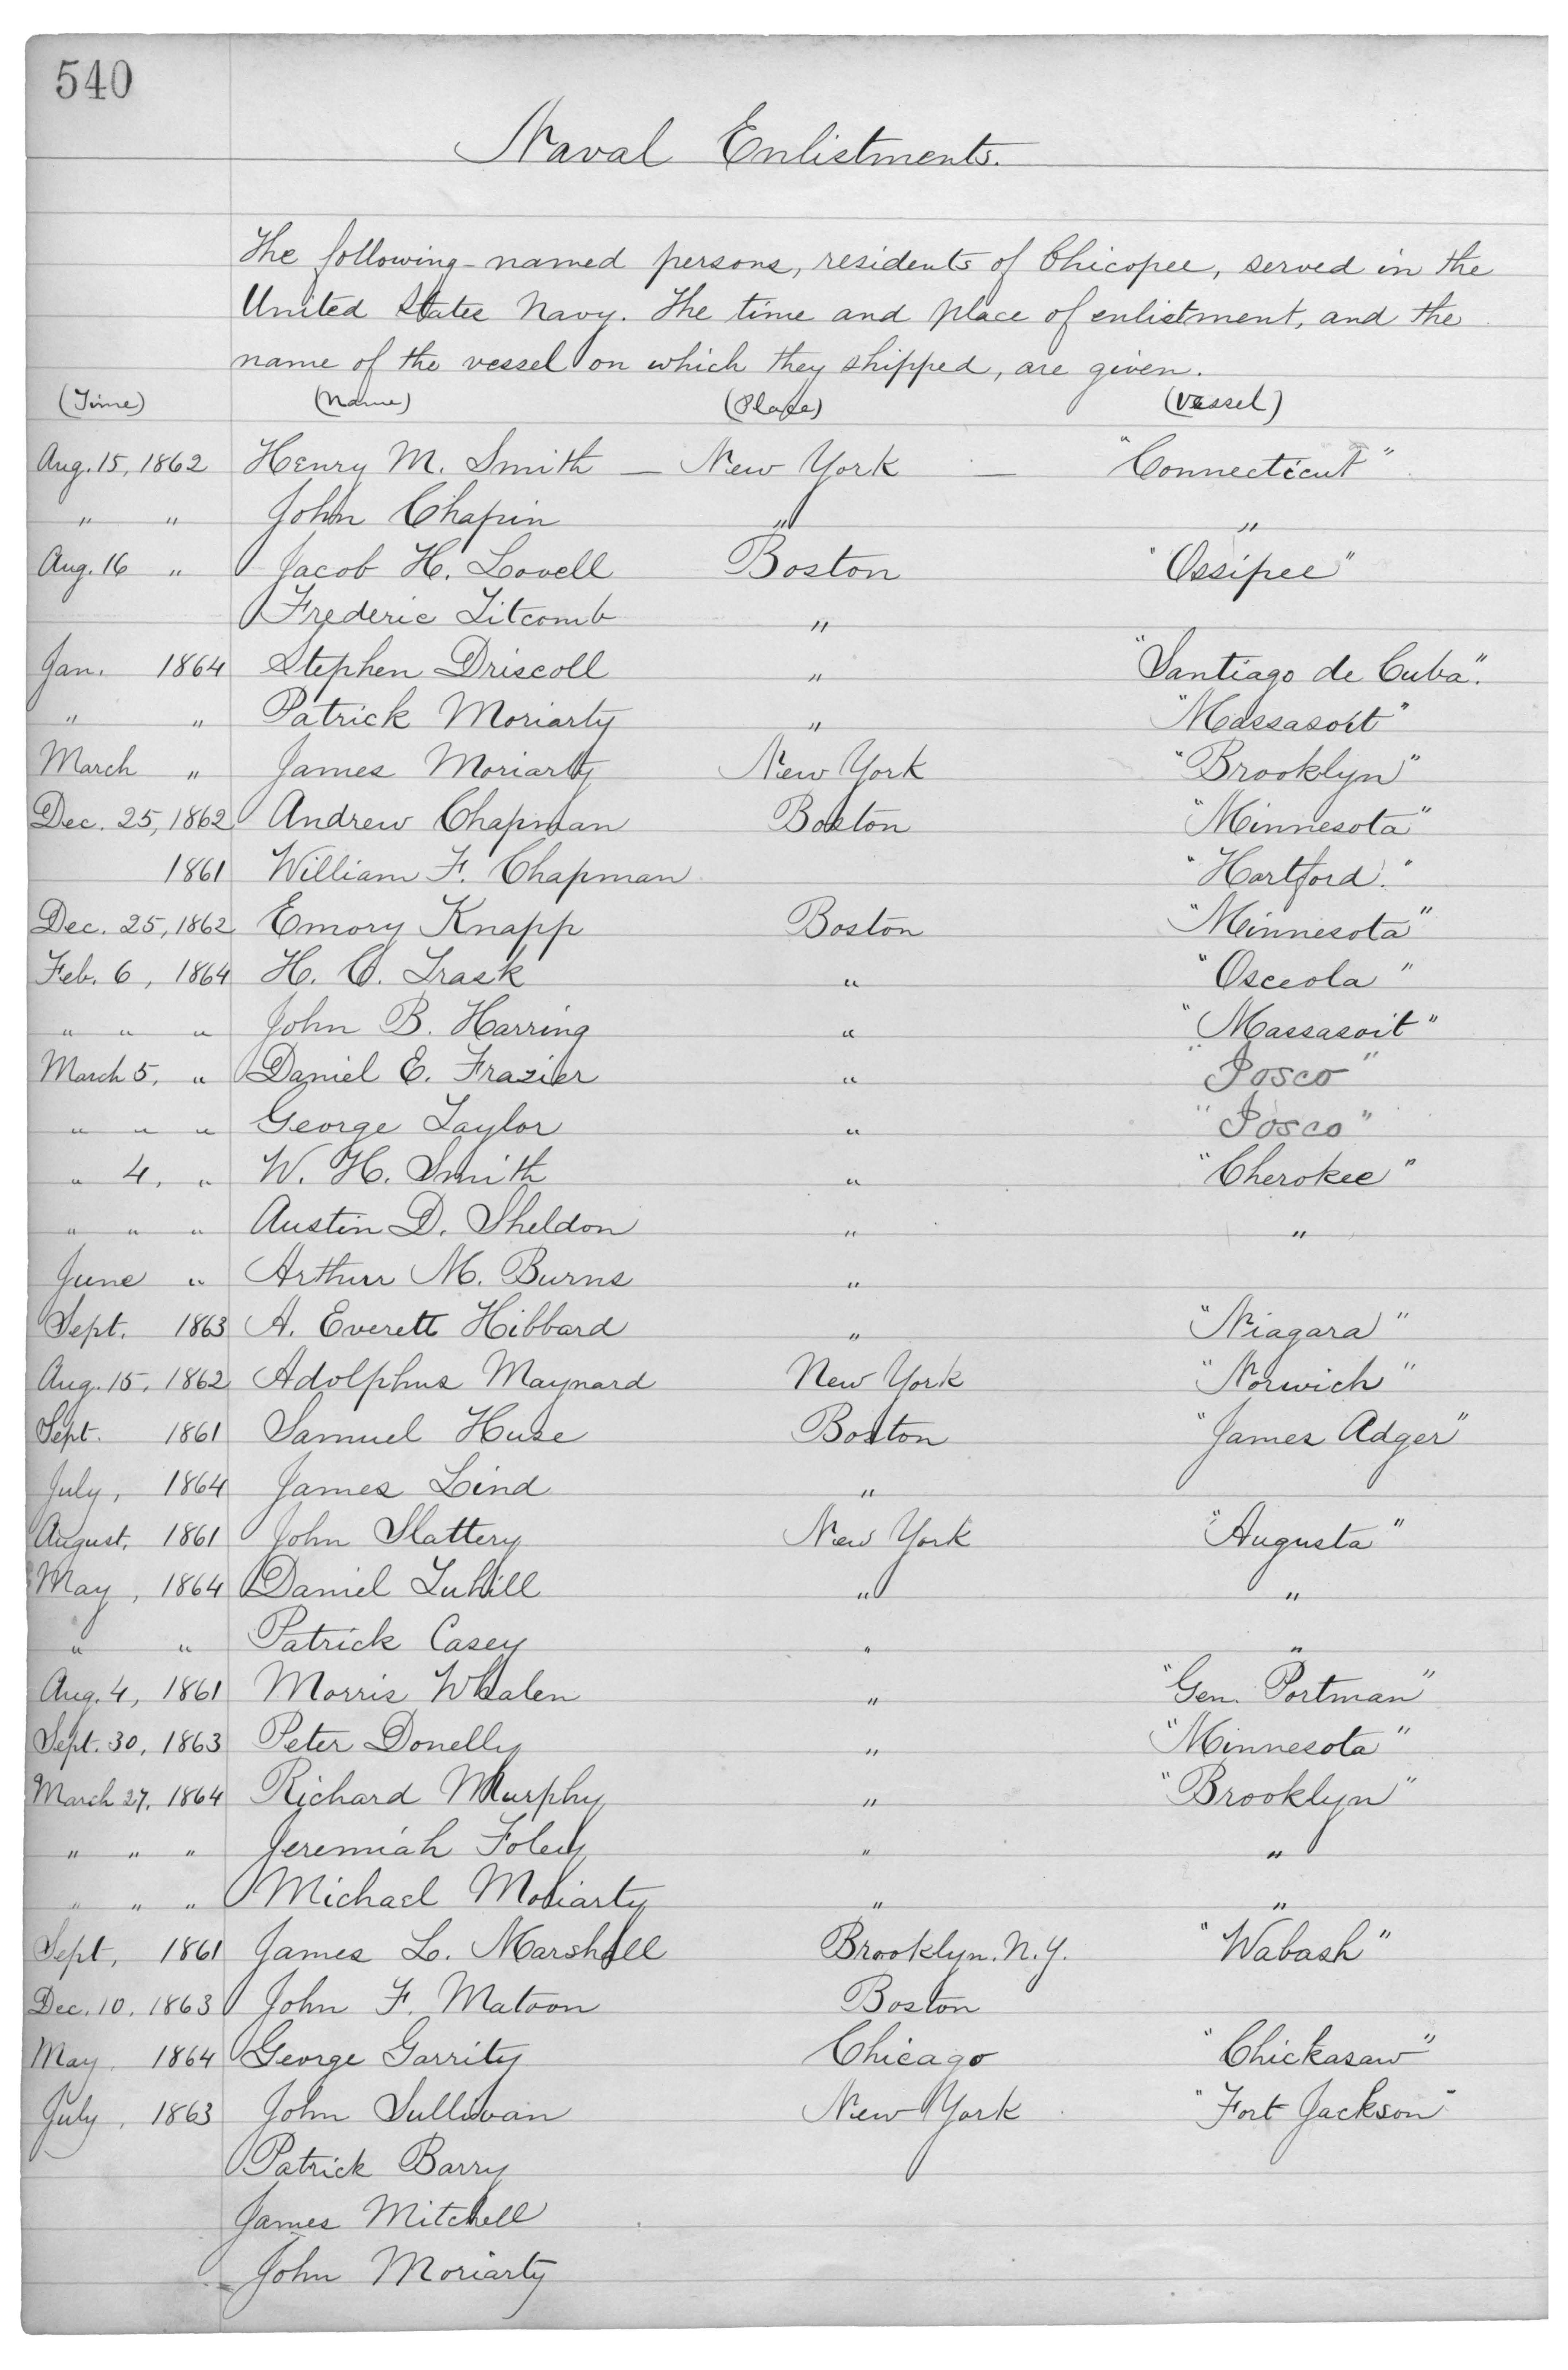 540
Naval Enlistments.
The following-named persons, residents of Chicopee, served in the
United States Navy. The time and place of enlistment, and the
name of the vessel on which they shipped, are given.
(Time) (Name) (Place) (Vessel)
Aug. 15, 1862 Henry M. Smith — New York — "Connecticut"
" " John Chapin " "
Aug. 16 " Jacob H. Lovell Boston "Ossipee"
Frederic Titcomb "
Jan. 1864 Stephen Driscoll " "Santiago de Cuba".
" " Patrick Moriarty " "Massasoit"
March " James Moriarty New York "Brooklyn"
Dec. 25, 1862 Andrew Chapman Boston "Minnesota"
1861 William F. Chapman "Hartford."
Dec. 25, 1862 Emory Knapp Boston "Minnesota"
Feb. 6, 1864 H. O. Trask " "Osceola"
" " " John B. Harring " "Massasoit"
March 5, " Daniel E. Frazier " "Iosco"
" " " George Taylor " "Iosco"
" 4, " W. H. Smith " "Cherokee"
" " " Austin D. Sheldon " "
June " Arthur M. Burns "
Sept. 1863 A. Everett Hibbard " "Niagara"
Aug. 15, 1862 Adolphus Maynard New York "Norwich"
Sept. 1861 Samuel Huse Boston "James Adger"
July, 1864 James Lind "
August, 1861 John Slattery New York "Augusta"
May, 1864 Daniel Tuhill " "
" " Patrick Casey " "
Aug. 4, 1861 Morris Whalen " "Gen. Portman"
Sept. 30, 1863 Peter Donelly " "Minnesota"
March 27, 1864 Richard Murphy " "Brooklyn"
" " " Jeremiah Foley " "
" " " Michael Moriarty " "
Sept, 1861 James L. Marshall Brooklyn. N.Y. "Wabash"
Dec. 10, 1863 John F. Matoon Boston
May, 1864 George Garrity Chicago "Chickasaw"
July, 1863 John Sullivan New York "Fort Jackson"
Patrick Barry
James Mitchell
John Moriarty